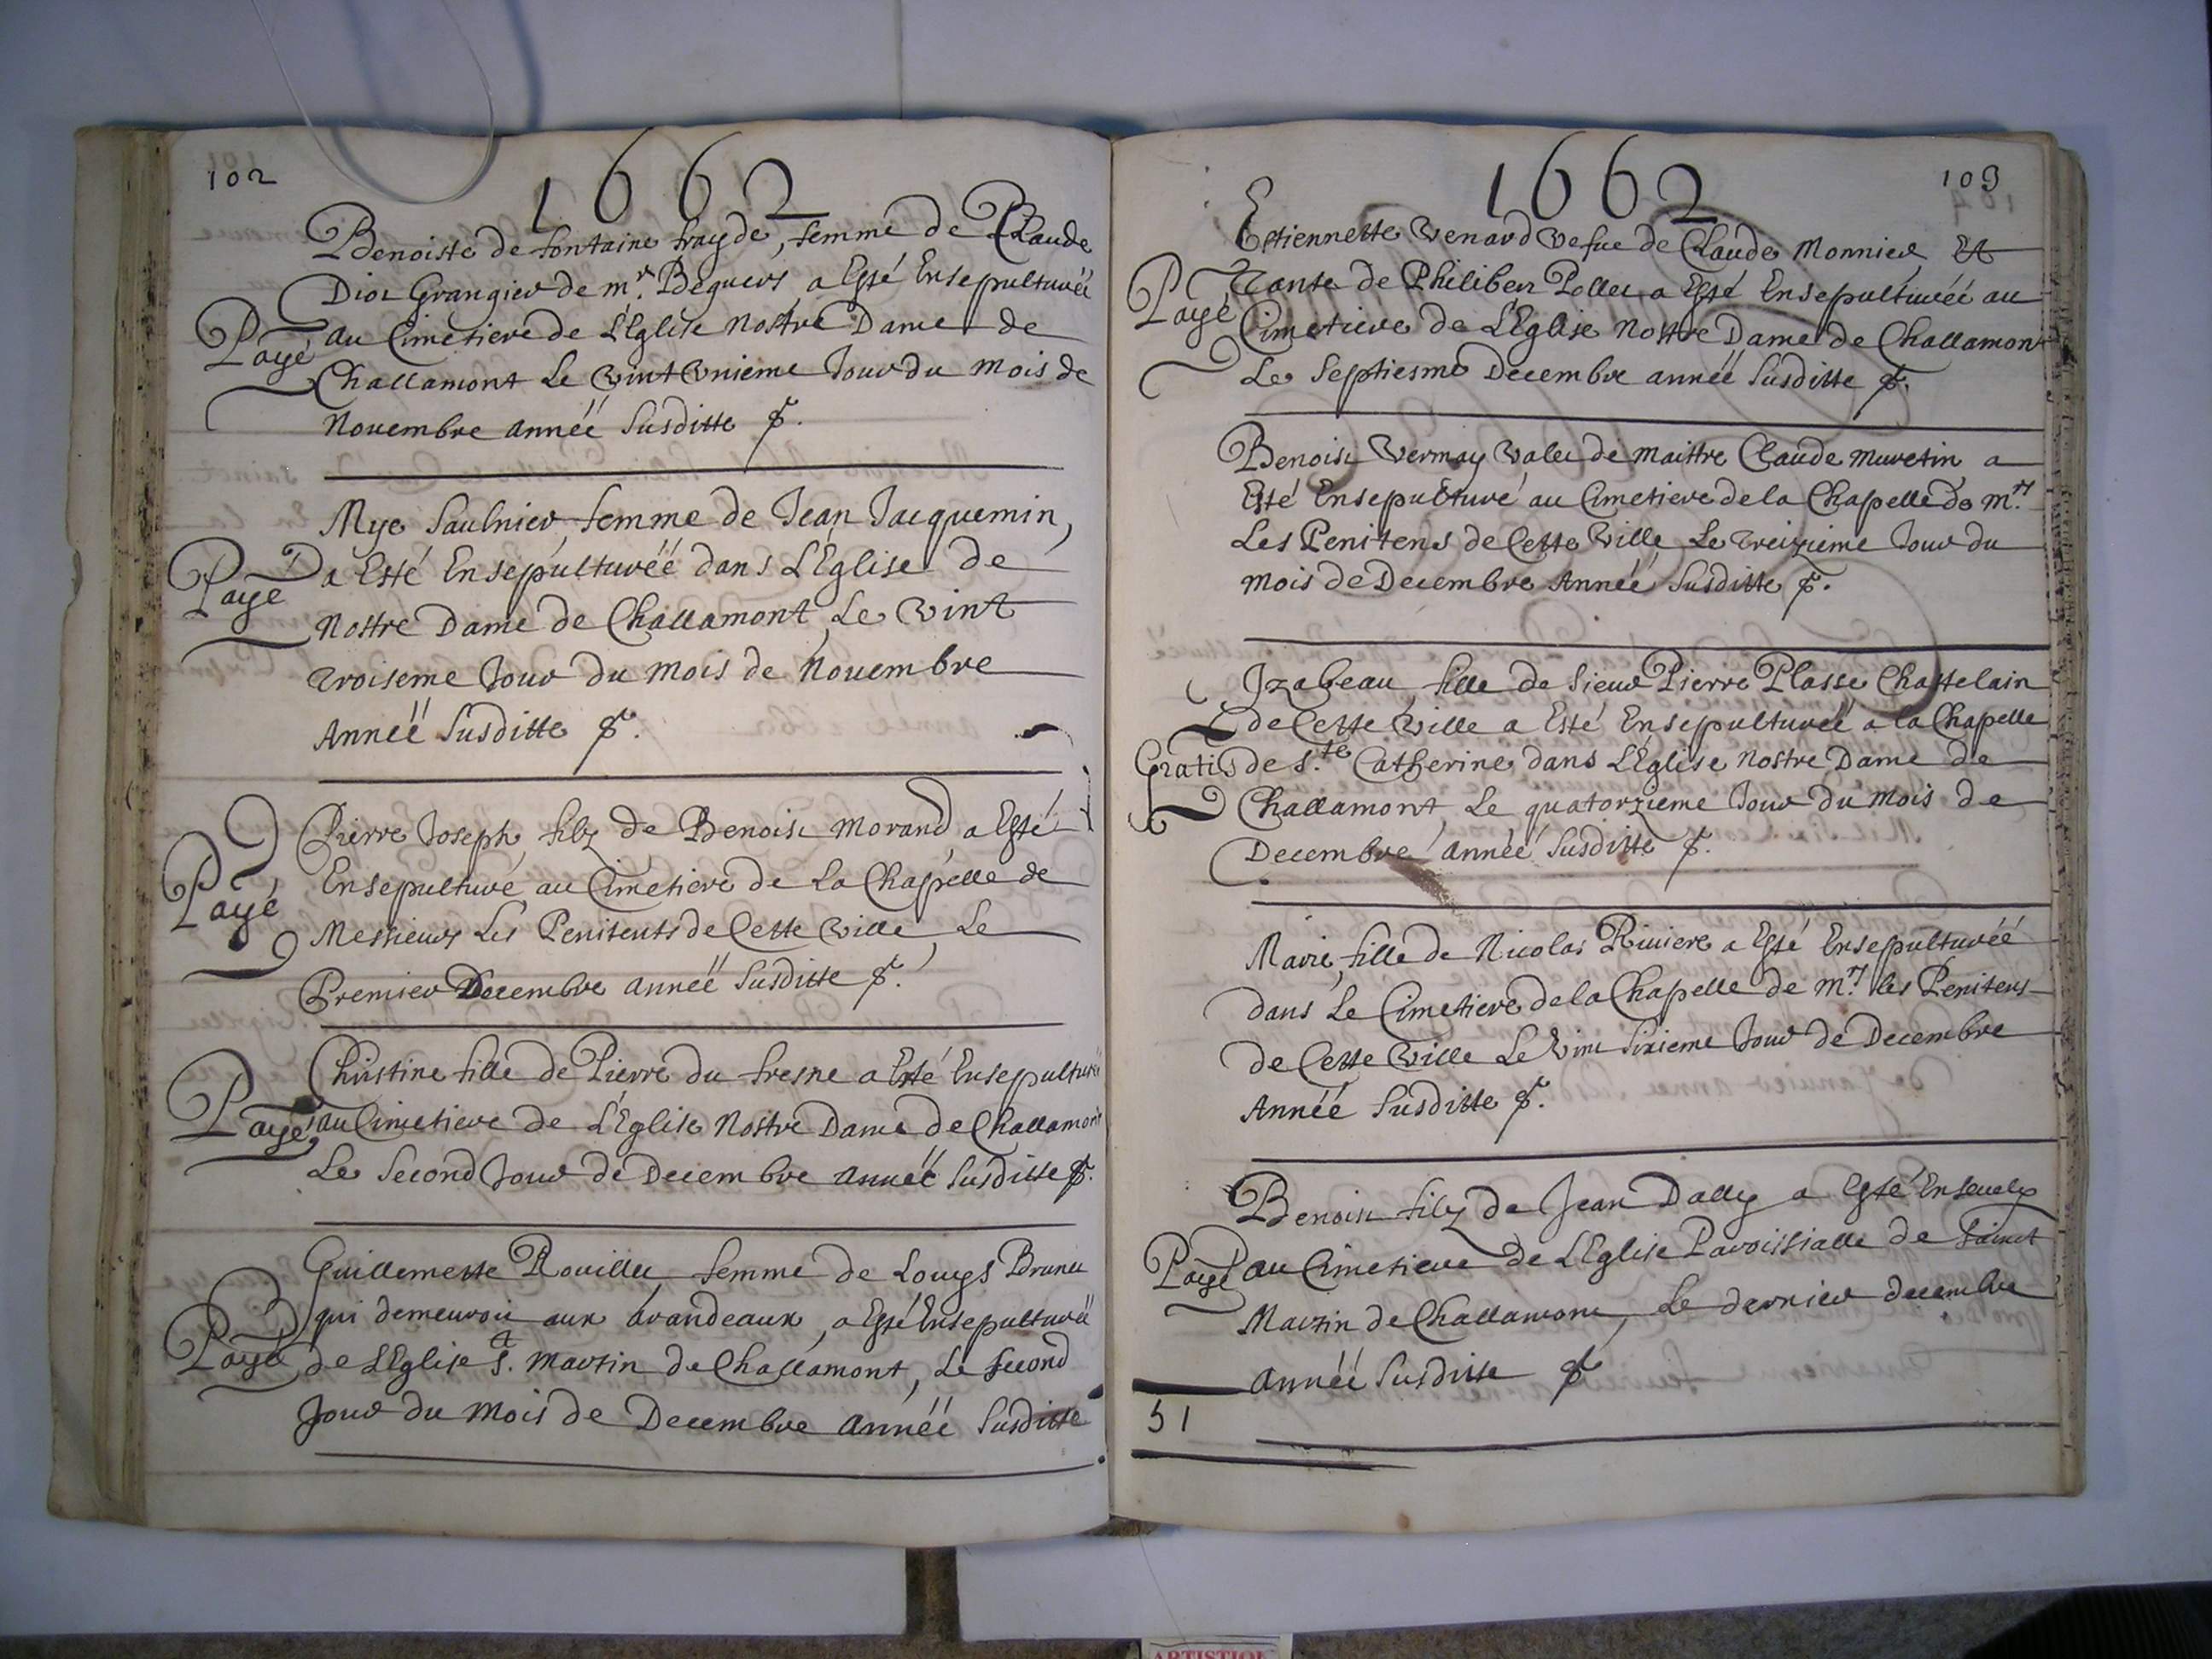 102
1662
Benoiste de fontaine frayde, femme de Claude
Dior Grangier de mr. Beguers a Esté Ensepulturéé
Payé
au Cimetiere de L'Eglise Nostre Dame de
Challamont Le vint vnieme Jour du mois de
Nouembre annéé susditte
Mye Saulnier, femme de Jean Jacquemin,
Payé
a Esté Ensepulturéé dans L'Eglise de
Nostre Dame de Challamont, Le vint
troiseme Jour du mois de Nouembre
Annéé susditte
Pierre Joseph, filz de Benoist Morand, a Esté
Payé
Ensepulturé au Cimetiere de La Chapelle de
Messieurs Les Penitents de Cette ville, Le
Premier Decembre annéé susditte
Christine fille de Pierre du fresne a Esté Ensepulturéé
Payé
au Cimetiere de L'Eglise Nostre Dame de Challamont
Le second Jour de Decembre annéé susditte
Guillemette Rouillet, femme de Louys Brunet
qui demeuroit aux brandeaux, a Esté Ensepulturéé
Payé
de L'Eglise St. Martin de Challamont, Le second
Jour du Mois de Decembre annéé susditte
1662
103
Estiennette Venard vefue de Claude Monnier Et
Tante de Philibert Pollet a Esté Ensepulturéé au
Payé
Cimetiere de L'Eglise Nostre Dame de Challamont
Le septiesme Decembre annéé susditte
Benoist Vermay valet de maittre Claude muretin a
Esté Ensepulturé au Cimetiere de la Chapelle de mrs.
Les Penitens de Cette ville Le treizieme Jour du
mois de Decembre Annéé susditte
Izabeau, fille de Sieur Pierre Plasse Chastelain
de Cette ville a Esté Ensepulturéé a la Chapelle
Gratis
de s.te Catherine dans L'Eglise Nostre Dame de
Challamont, Le quatorzieme Jour du mois de
Decembre annéé susditte
Marie, fille de Nicolas Riuiere a Esté Ensepulturéé
dans Le Cimetiere de la Chapelle de mrs. les Penitens
de Cette ville Le vint sixieme Jour de Decembre
Annéé susditte
Benoist filz de Jean Dally a Esté Ensevely
Payé
au Cimetiere de L'Eglise Paroissialle de Sainct
Martin de Challamont, Le dernier decembre
annéé susditte
51